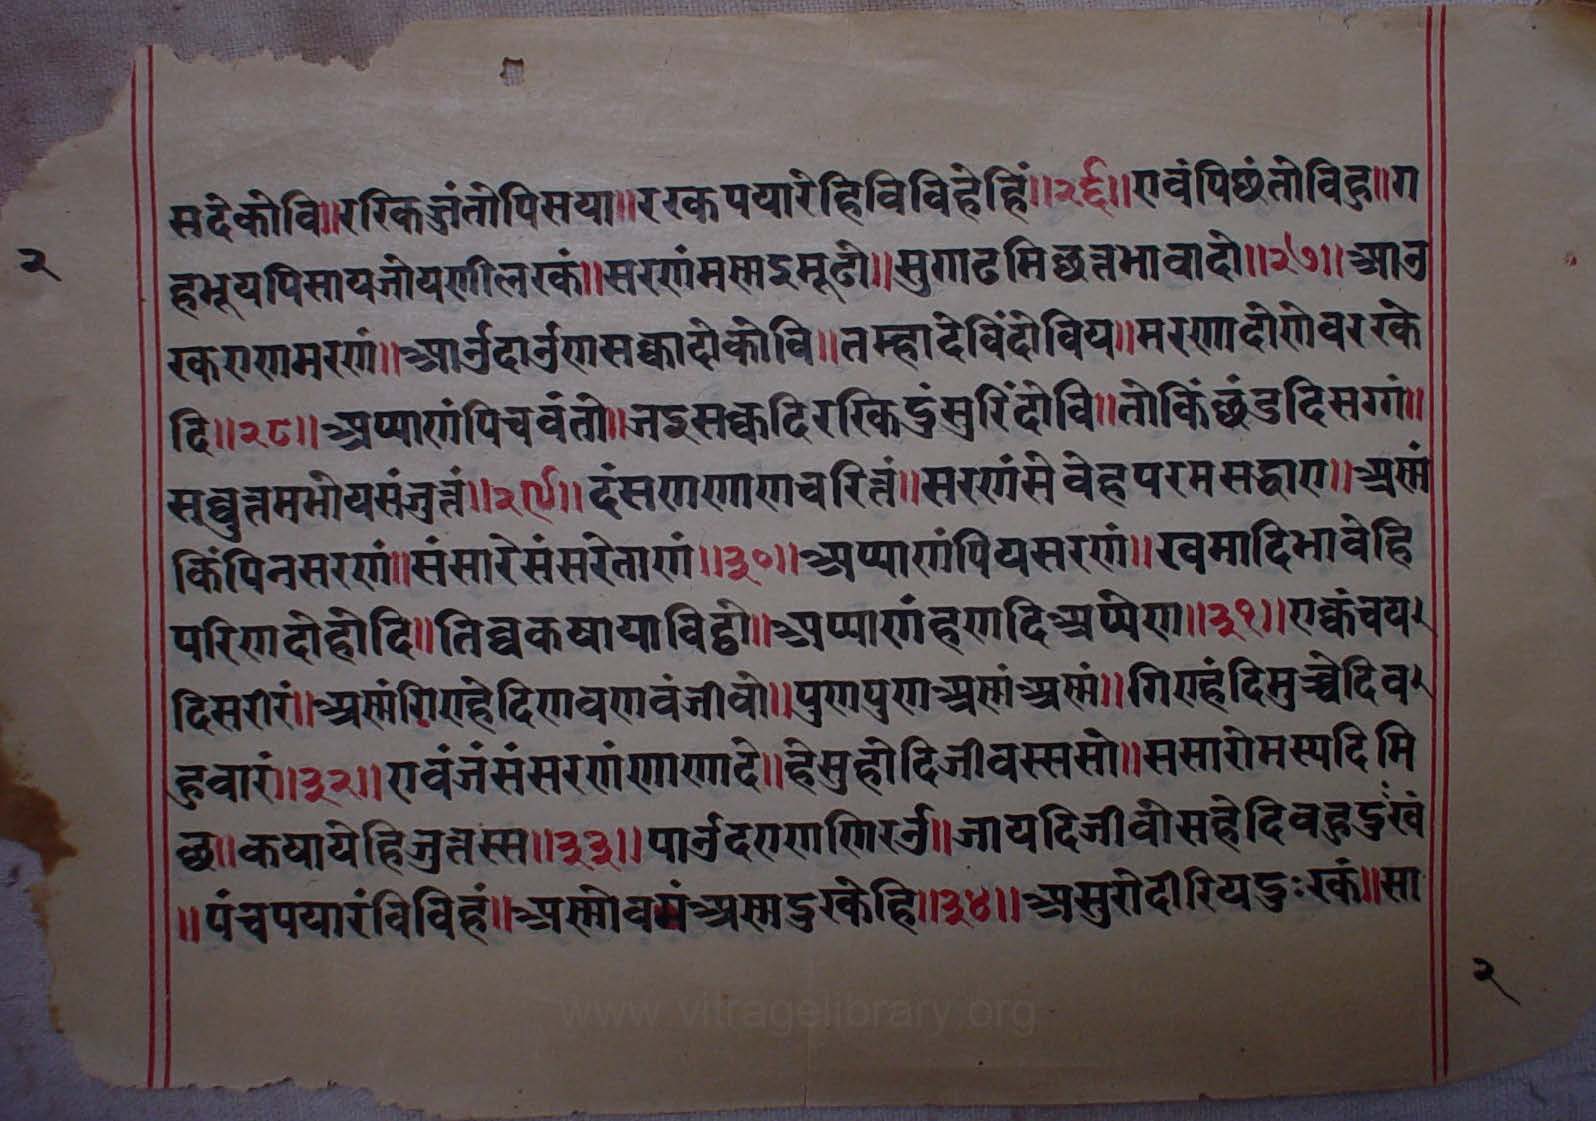 सदेकोवि॥ररकिज्जंतोपिसया॥ररकपयारेहिविविहेहिं॥२६॥एवंपिछंतोविहु॥ग
२
हभूयपिसायजोयणीलरकं॥सरणंमसाइमूढो॥सुगाढमिछत्तभावादो॥२७॥आउ
रकएणमरणं॥आउंदाउंणसक्कादोकोवि॥तम्हादेविंदोविय॥मरणादोणेवररके
दि॥२८॥अप्पाणंपिचवंतो॥जइसक्कदिररकिदुंसुरिंदोवि॥तोकिंछंडदिसग्गं॥
सव्वुत्तमभोयसंजुत्तं॥२९॥दंसणणाणचरित्तं॥सरणंसेवेहपरमसद्धाए॥असं
किंपिनसरणं॥संसारेसंसरंताणं॥३०॥अप्पाणंपियसरणं॥खमादिभावेहि
परिणदोहोदि॥तिव्वकषायाविट्ठो॥अप्पाणंहणदिअप्पेण॥३१॥एक्कंचय
दिसरीरं॥असंगिएहेदिणवणवंजीवो॥पुणपुणअसंअसं॥गिएहंदिमुच्चेदिव
हुवारं॥३२॥एवंजंसंसरणंणाणादे॥हेसुहोदिजीवस्ससो॥ससारोमस्यदिमि
छ॥कषायेहिजुत्तस्स॥३३॥पाउंदएणणिरउं॥जायदिजीवोसहेदिवहुदुःखं
॥पंचपयारंविविहं॥असोवमंअसदुरकेहि॥३४॥असुरोदीरियदुःरकं॥सा
२
www.vitragelibrary.org